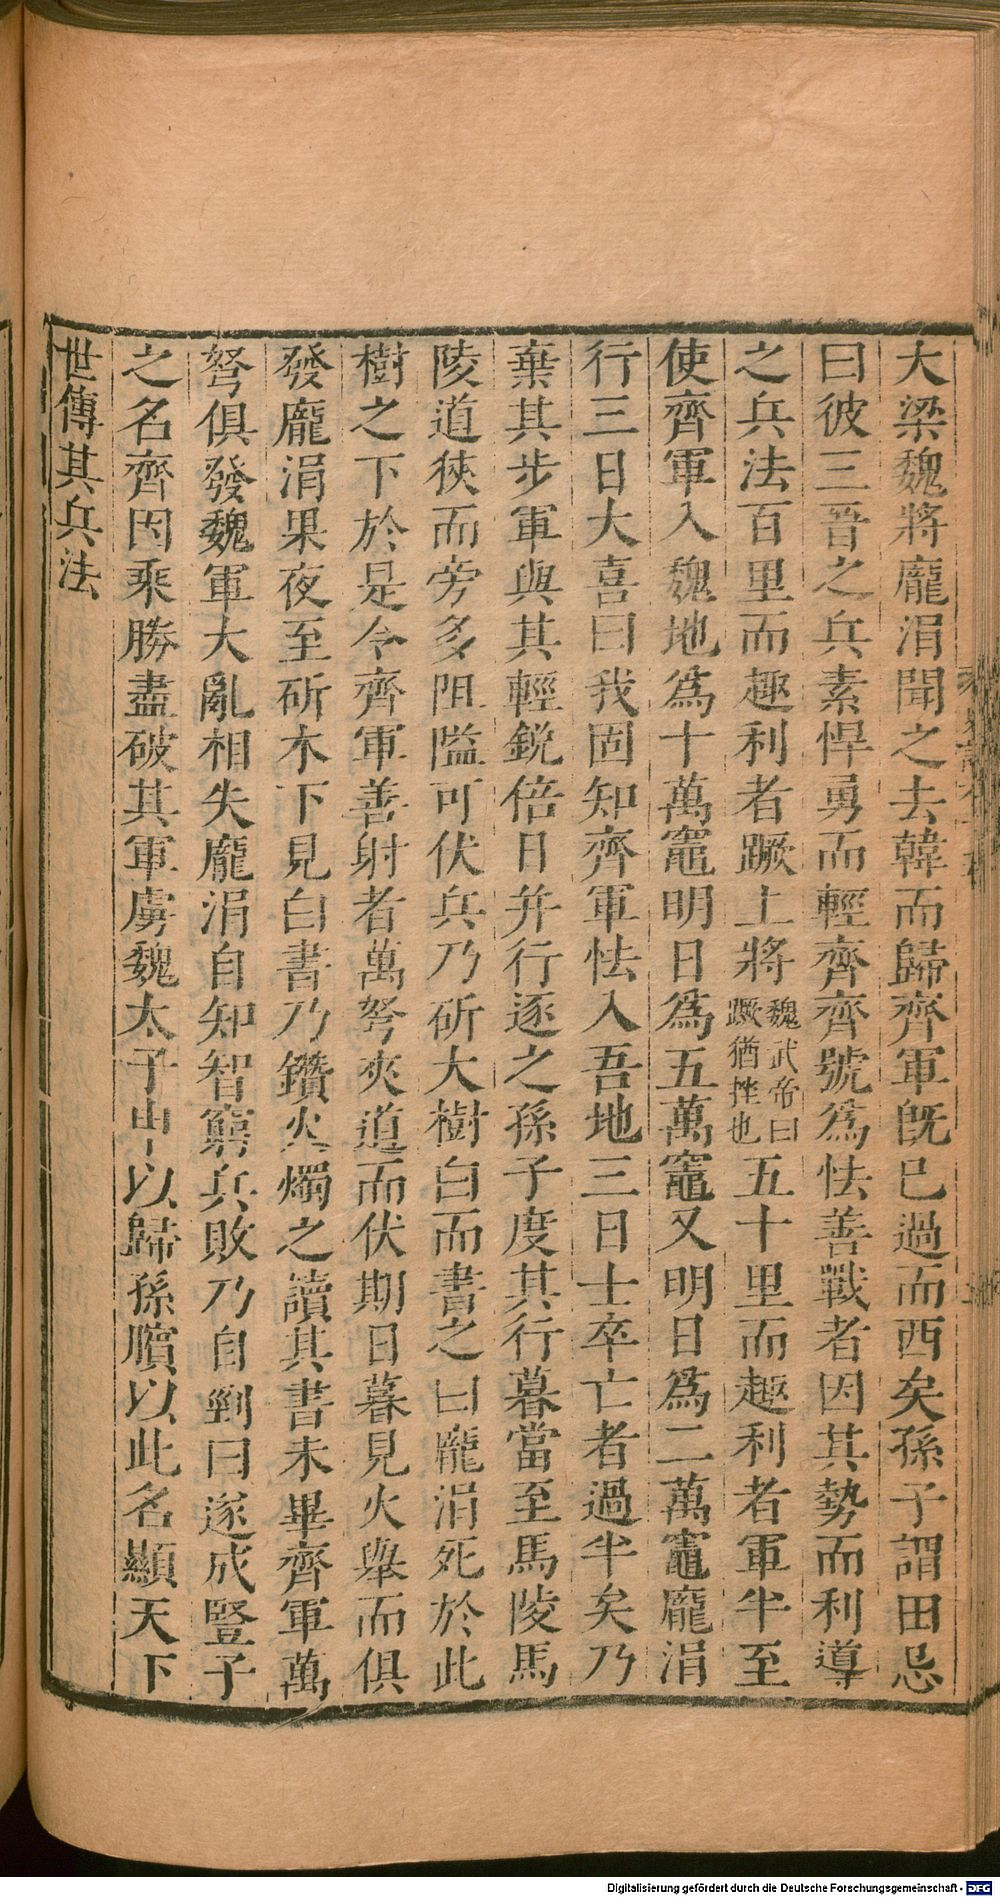 大梁魏將龐涓聞之去韓而歸齊軍旣已過而西矣孫子謂田忌
曰彼三晉之兵素悍勇而輕齊齊號爲怯善戰者因其勢而利導
之兵法百里而趣利者蹶上將魏武帝曰蹶猶挫也五十里而趣利者軍半至
使齊軍入魏地爲十萬竈明日爲五萬竈又明日爲二萬竈龐涓
行三日大喜曰我固知齊軍怯入吾地三日士卒亡者過半矣乃
棄其步軍與其輕銳倍日并行逐之孫子度其行暮當至馬陵馬
陵道狹而旁多阻隘可伏兵乃斫大樹白而書之曰龐涓死於此
樹之下於是令齊軍善射者萬弩夾道而伏期日暮見火舉而俱
發龐涓果夜至斫木下見白書乃鑽火燭之讀其書未畢齊軍萬
弩俱發魏軍大亂相失龐涓自知智窮兵敗乃自剄曰遂成豎子
之名齊因乘勝盡破其軍虜魏太子申以歸孫臏以此名顯天下
世傳其兵法
Digitalisierung gefördert durch die Deutsche Forschungsgemeinschaft - DFG